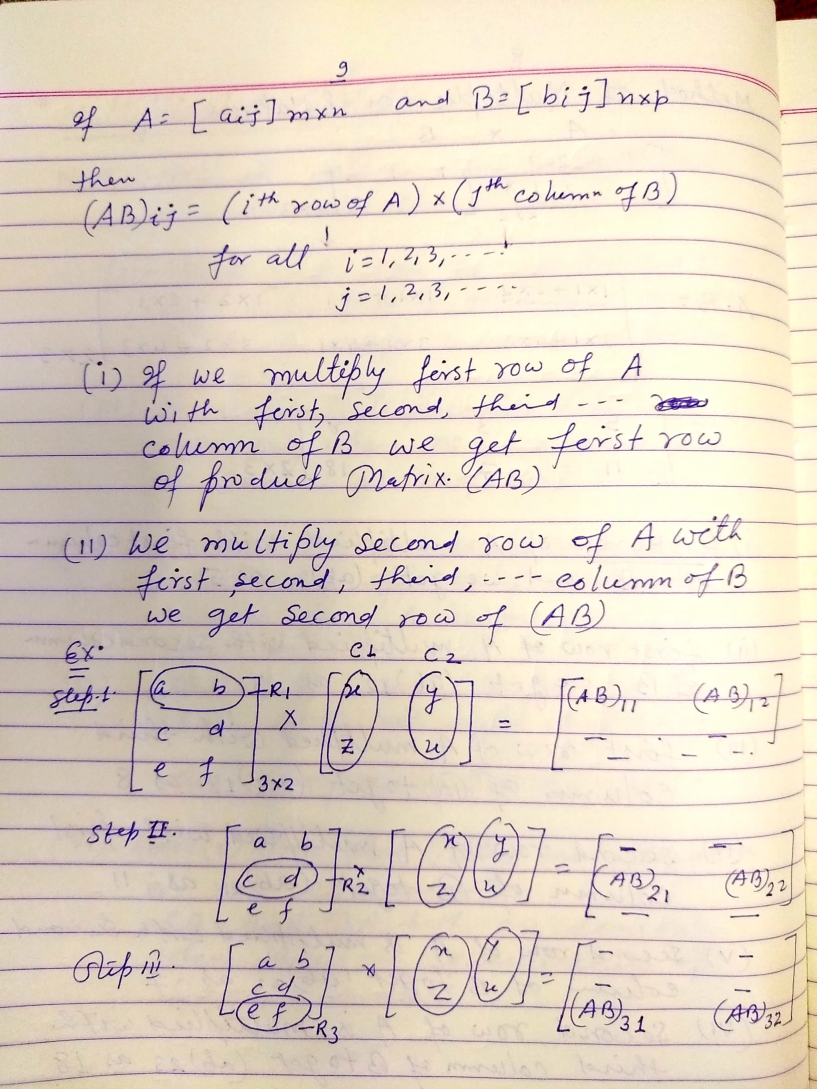 9
If A = [aij] m×n and B = [bij] n×p
then
(AB)ij = (ith row of A) × (jth column of B)
for all i = 1, 2, 3, ----
j = 1, 2, 3, -----
(i) If we multiply first row of A
with first, second, third ---
column of B we get first row
of product Matrix. (AB)
(ii) We multiply second row of A with
first, second, third, ---- column of B
we get second row of (AB)
Ex. C1 C2
Step-1 [a b] R1 × [x y] = [(AB)11 (AB)12]
c d z u — — . - —.
e f 3×2
Step II. [a b] × [x y] = [— —]
c d R2 z u (AB)21 (AB)22
e f — —
Step iii. [a b] × [x y] = [— —]
c d z u — —
e f R3 (AB)31 (AB)32